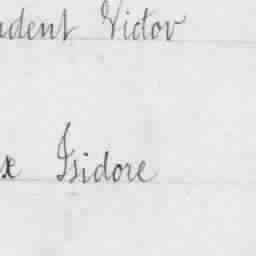 udent Victor
x Isidore